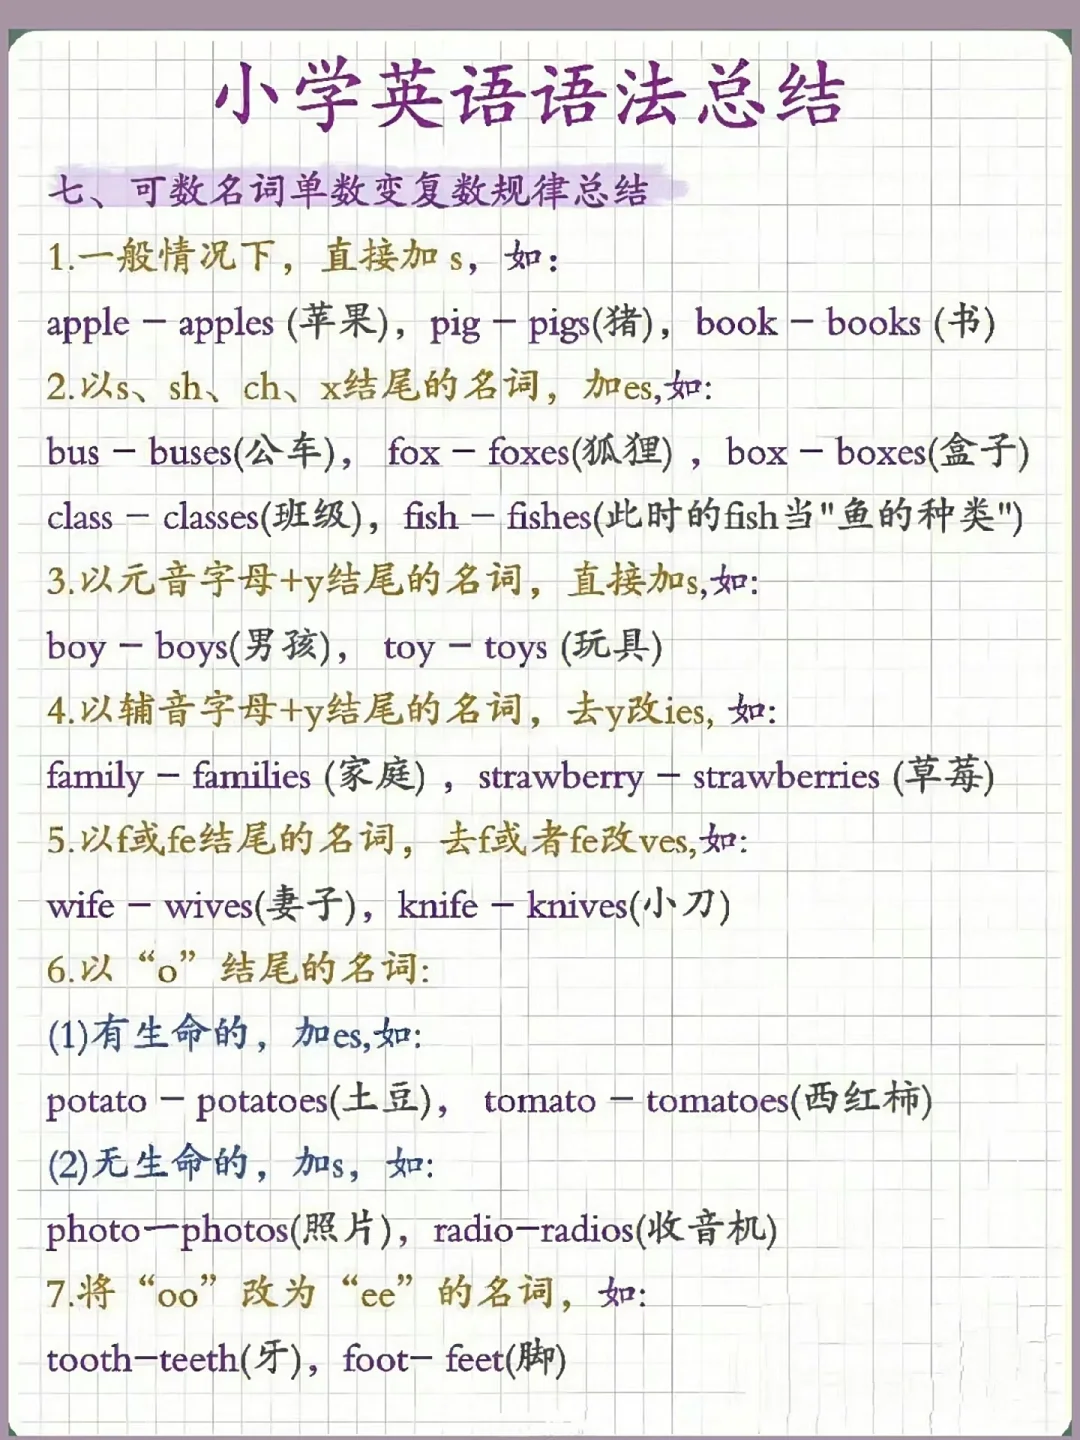 小学英语语法总结
七、可数名词单数变复数规律总结
1.一般情况下，直接加 s，如：
apple – apples (苹果)，pig – pigs(猪)，book – books (书)
2.以s、sh、ch、x结尾的名词，加es,如:
bus – buses(公车)， fox – foxes(狐狸) ，box – boxes(盒子)
class – classes(班级)，fish – fishes(此时的fish当"鱼的种类")
3.以元音字母+y结尾的名词，直接加s,如:
boy – boys(男孩)， toy – toys (玩具)
4.以辅音字母+y结尾的名词，去y改ies, 如:
family – families (家庭) ，strawberry – strawberries (草莓)
5.以f或fe结尾的名词，去f或者fe改ves,如:
wife – wives(妻子)，knife – knives(小刀)
6.以“o”结尾的名词:
(1)有生命的，加es,如:
potato – potatoes(土豆)， tomato – tomatoes(西红柿)
(2)无生命的，加s，如:
photo—photos(照片)，radio—radios(收音机)
7.将“oo”改为“ee”的名词，如:
tooth—teeth(牙)，foot— feet(脚)